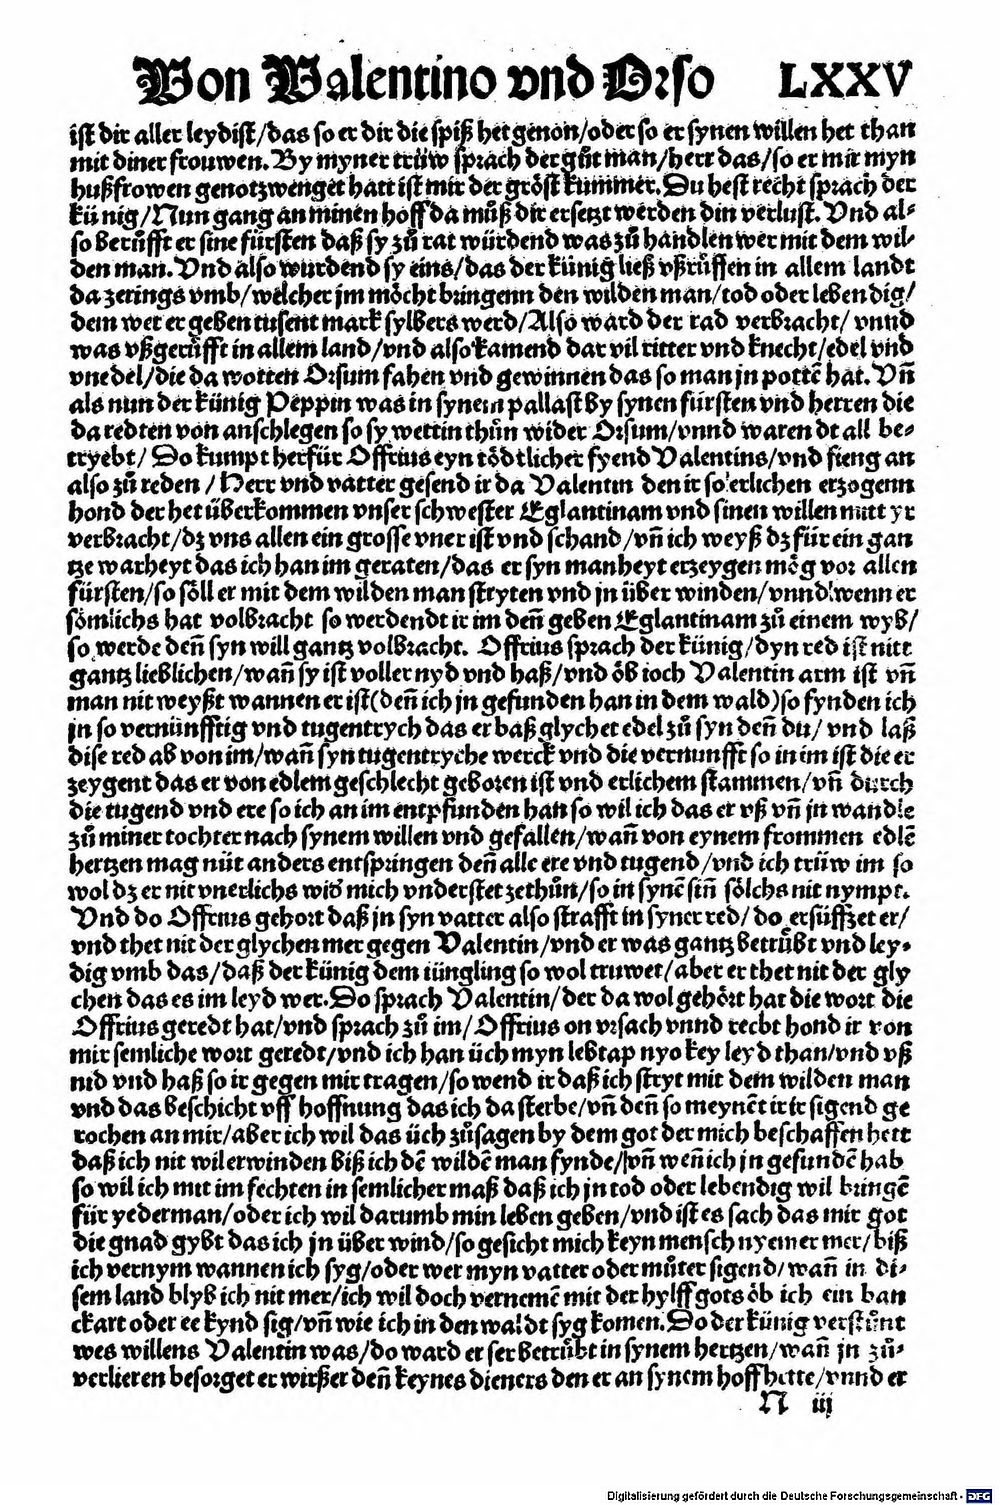 Von Valentino vnd Orso LXXV
ist dir aller leydist/das so er dir die spiß het genon/oder so er synen willen het than
mit diner frouwen. By myner trüw sprach der gůt man/herr das/so er mir myn
hußfrowen genotzwenget hatt ist mir der gröst kummer. Du hest recht sprach der
künig/Nun gang an minen hoff da můß dir ersetzt werden din verlust. Vnd al⸗
so berůfft er sine fürsten daß sy zů rat würdend was zů handlen wer mit dem wil⸗
den man. Vnd also wurdend sy eins/das der künig ließ vßrůffen in allem landt
da zerings vmb/welcher jm möcht bringenn den wilden man/tod oder lebendig/
dem wet er geben tusent marck sylbers werd/Also ward der rad verbracht/ vnnd
was vßgerůfft in allem land/vnd also kamend dar vil ritter vnd knecht/edel vnd
vnedel/die da wotten Orsum fahen vnd gewinnen das so man jn pottē hat. Vñ
als nun der künig Peppin was in synem pallast by synen fürsten vnd herren die
da redten von anschlegen so sy wettin thůn wider Orsum/vnnd waren dt all be⸗
tryebt/ Do kumpt herfür Offrius eyn tödtlicher fyend Valentins/vnd fieng an
also zů reden / Herr vnd vatter gesend ir da Valentin den ir so erlichen erzogenn
hond der het überkommen vnser schwester Eglantinam vnd sinen willen mitt yr
verbracht/dz vns allen ein grosse vner ist vnd schand/vñ ich weyß dz für ein gan
tze warheyt das ich han im geraten/das er syn manheyt erzeygen mög vor allen
fürsten/so söll er mit dem wilden man stryten vnd jn über winden/vnnd wenn er
sömlichs hat volbracht so werdendt ir im deñ geben Eglantinam zů einem wyb/
so werde deñ syn will gantz volbracht. Offrius sprach der künig/dyn red ist nitt
gantz lieblichen/wañ sy ist voller nyd vnd haß/vnd öb ioch Valentin arm ist vñ
man nit weyßt wannen er ist(deñ ich jn gefunden han in dem wald)so fynden ich
jn so vernünfftig vnd tugentrych das er baß glychet edel zů syn deñ du/ vnd laß
dise red ab von im/wañ syn tugentryche werck vnd die vernunfft so in im ist die er
zeygent das er von edlem geschlecht geboren ist vnd erlichem stammen/vñ durch
die tugend vnd ere so ich an im entpfunden han so wil ich das er vß vñ jn wandle
zů miner tochter nach synem willen vnd gefallen/wañ von eynem frommen edlē
hertzen mag nüt anders entspringen deñ alle ere vnd tugend/vnd ich trüw im so
wol dz er nit vnerlichs wid᷑ mich vnderstet zethůn/so in synē siñ sölchs nit nympt.
Vnd do Offrius gehort daß jn syn vatter also strafft in syner red/ do ersüffzet er/
vnd thet nit der glychen mer gegen Valentin/vnd er was gantz betrůbt vnd ley⸗
dig vmb das/daß der künig dem iüngling so wol truwet/aber er thet nit der gly
chen das es im leyd wer. Do sprach Valentin/der da wol gehört hat die wort die
Offrius geredt hat/vnd sprach zů im/Offrius on vrsach vnnd recht hond ir von
mir semliche wort geredt/vnd ich han üch myn lebtag nyo key leyd than/vnd vß
nid vnd haß so ir gegen mir tragen/so wend ir daß ich stryt mit dem wilden man
vnd das beschicht vff hoffnung das ich da sterbe/vñ deñ so meynēt ir ir sigend ge
rochen an mir/aber ich wil das üch zůsagen by dem got der mich beschaffen hett
daß ich nit wil erwinden biß ich dē wildē man fynde/vñ weñ ich jn gefundē hab
so wil ich mit im fechten in semlicher maß daß ich jn tod oder lebendig wil bringē
für yederman/oder ich wil darumb min leben geben/vnd ist es sach das mir got
die gnad gybt das ich jn über wind/so gesicht mich keyn mensch nyemer mer/biß
ich vernym wannen ich syg/oder wer myn vatter oder můter sigend/wañ in di⸗
sem land blyb ich nit mer/ich wil doch vernemē mit der hylff gots öb ich ein ban
ckart oder ee kynd sig/vñ wie ich in den waldt syg komen. Do der künig verstůnt
wes willens Valentin was/do ward er ser betrůbt in synem hertzen/wañ jn zů⸗
verlieren besorget er wirßer deñ keynes dieners den er an synem hoff hette/vnnd er
N iij
Digitalisierung gefördert durch die Deutsche Forschungsgemeinschaft - DFG